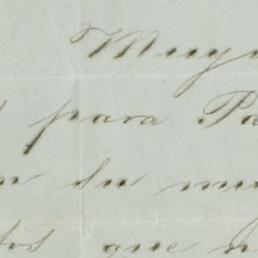 Muy
para Pa
su mu
que